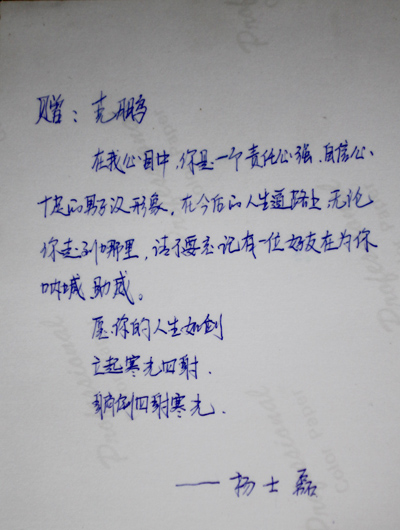 赠：克鹏
在我心目中,你是一个责任心强.自信心
十足的男子汉形象,在今后的人生道路上,无论
你走到哪里,请不要忘记有一位好友在为你
呐喊助威。
愿你的人生如剑
立起寒光四射.
躺倒四射寒光.
——杨士磊
Professional
Color Paper